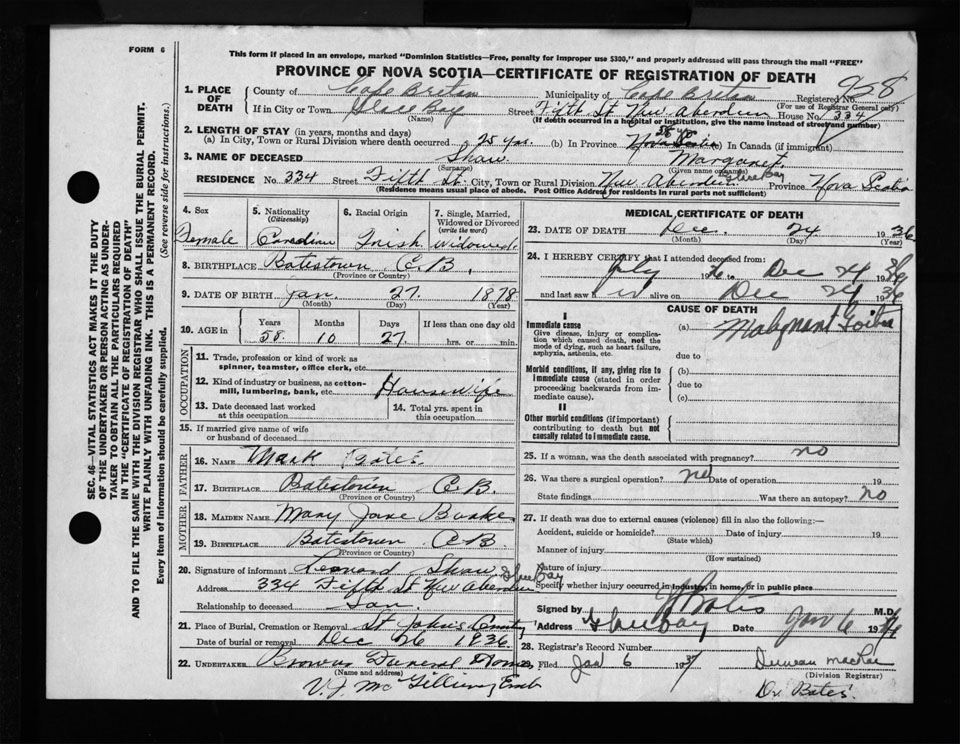 FORM 6
This form if placed in an envelope, marked "Dominion Statistics—Free, penalty for improper use $300," and properly addressed will pass through the mail "FREE"
PROVINCE OF NOVA SCOTIA—CERTIFICATE OF REGISTRATION OF DEATH
SEC. 46—VITAL STATISTICS ACT MAKES IT THE DUTY
OF THE UNDERTAKER OR PERSON ACTING AS UNDER-
TAKER TO OBTAIN ALL THE PARTICULARS REQUIRED
IN THE "CERTIFICATE OF REGISTRATION OF DEATH"
AND TO FILE THE SAME WITH THE DIVISION REGISTRAR WHO SHALL ISSUE THE BURIAL PERMIT.
WRITE PLAINLY WITH UNFADING INK. THIS IS A PERMANENT RECORD.
Every item of information should be carefully supplied. (See reverse side for instructions.)
1. PLACE OF DEATH County of Cape Breton Municipality of Cape Breton Registered No. 958
(For use of Registrar General only)
If in City or Town Glace Bay Street Fifth St New Aberdeen House No. 334
(Name) (If death occurred in a hospital or institution, give the name instead of street and number)
2. LENGTH OF STAY (in years, months and days)
(a) In City, Town or Rural Division where death occurred 25 yrs. (b) In Province 58 yrs Nova Scotia (c) In Canada (if immigrant)
3. NAME OF DECEASED Shaw Margaret
(Surname) (Given name or names)
RESIDENCE No. 334 Street Fifth St. City, Town or Rural Division New Aberdeen Glace Bay Province Nova Scotia
(Residence means usual place of abode. Post Office Address for residents in rural parts not sufficient)
4. Sex Female
5. Nationality (Citizenship) Canadian
6. Racial Origin Irish
7. Single, Married, Widowed or Divorced (write the word) Widowed
8. BIRTHPLACE Batestown C.B.
(Province or Country)
9. DATE OF BIRTH Jan. 27. 1878
(Month) (Day) (Year)
10. AGE in Years 58. Months 10 Days 27 If less than one day old hrs. or min.
OCCUPATION
11. Trade, profession or kind of work as spinner, teamster, office clerk, etc.
12. Kind of industry or business, as cotton-mill, lumbering, bank, etc. Housewife
13. Date deceased last worked at this occupation
14. Total yrs. spent in this occupation
15. If married give name of wife or husband of deceased
FATHER
16. NAME Mark Bates
17. BIRTHPLACE Batestown C.B.
(Province or Country)
MOTHER
18. MAIDEN NAME Mary Jane Burke
19. BIRTHPLACE Batestown C B
(Province or Country)
20. Signature of informant Leonard Shaw
Address 334 Fifth St New Aberdeen Glace Bay
Relationship to deceased Son
21. Place of Burial, Cremation or Removal St John's Cemetery
Date of burial or removal Dec 26 1936.
22. UNDERTAKER Browns Funeral Home
(Name and address)
V. J. Mc Gillivray Emb
MEDICAL CERTIFICATE OF DEATH
23. DATE OF DEATH Dec. 24 1936
(Month) (Day) (Year)
24. I HEREBY CERTIFY that I attended deceased from:
July 1936 to Dec 24 1936
and last saw alive on Dec 24 1936
CAUSE OF DEATH
I
Immediate cause
Give disease, injury or complication which caused death, not the mode of dying, such as heart failure, asphyxia, asthenia, etc.
(a) Malignant Goitre
due to
Morbid conditions, if any, giving rise to immediate cause (stated in order proceeding backwards from immediate cause).
(b)
due to
(c)
II
Other morbid conditions (if important) contributing to death but not causally related to immediate cause.
25. If a woman, was the death associated with pregnancy? no
26. Was there a surgical operation? no Date of operation 19
State findings Was there an autopsy? no
27. If death was due to external causes (violence) fill in also the following:—
Accident, suicide or homicide? Date of injury 19
(State which)
Manner of injury
(How sustained)
Nature of injury
Specify whether injury occurred in industry, in home, or in public place
Signed by Bates M.D.
Address Glace bay Date Jan 6 19
28. Registrar's Record Number
Filed Jan 6 1937 Duncan MacRae
(Division Registrar)
Dr. Bates